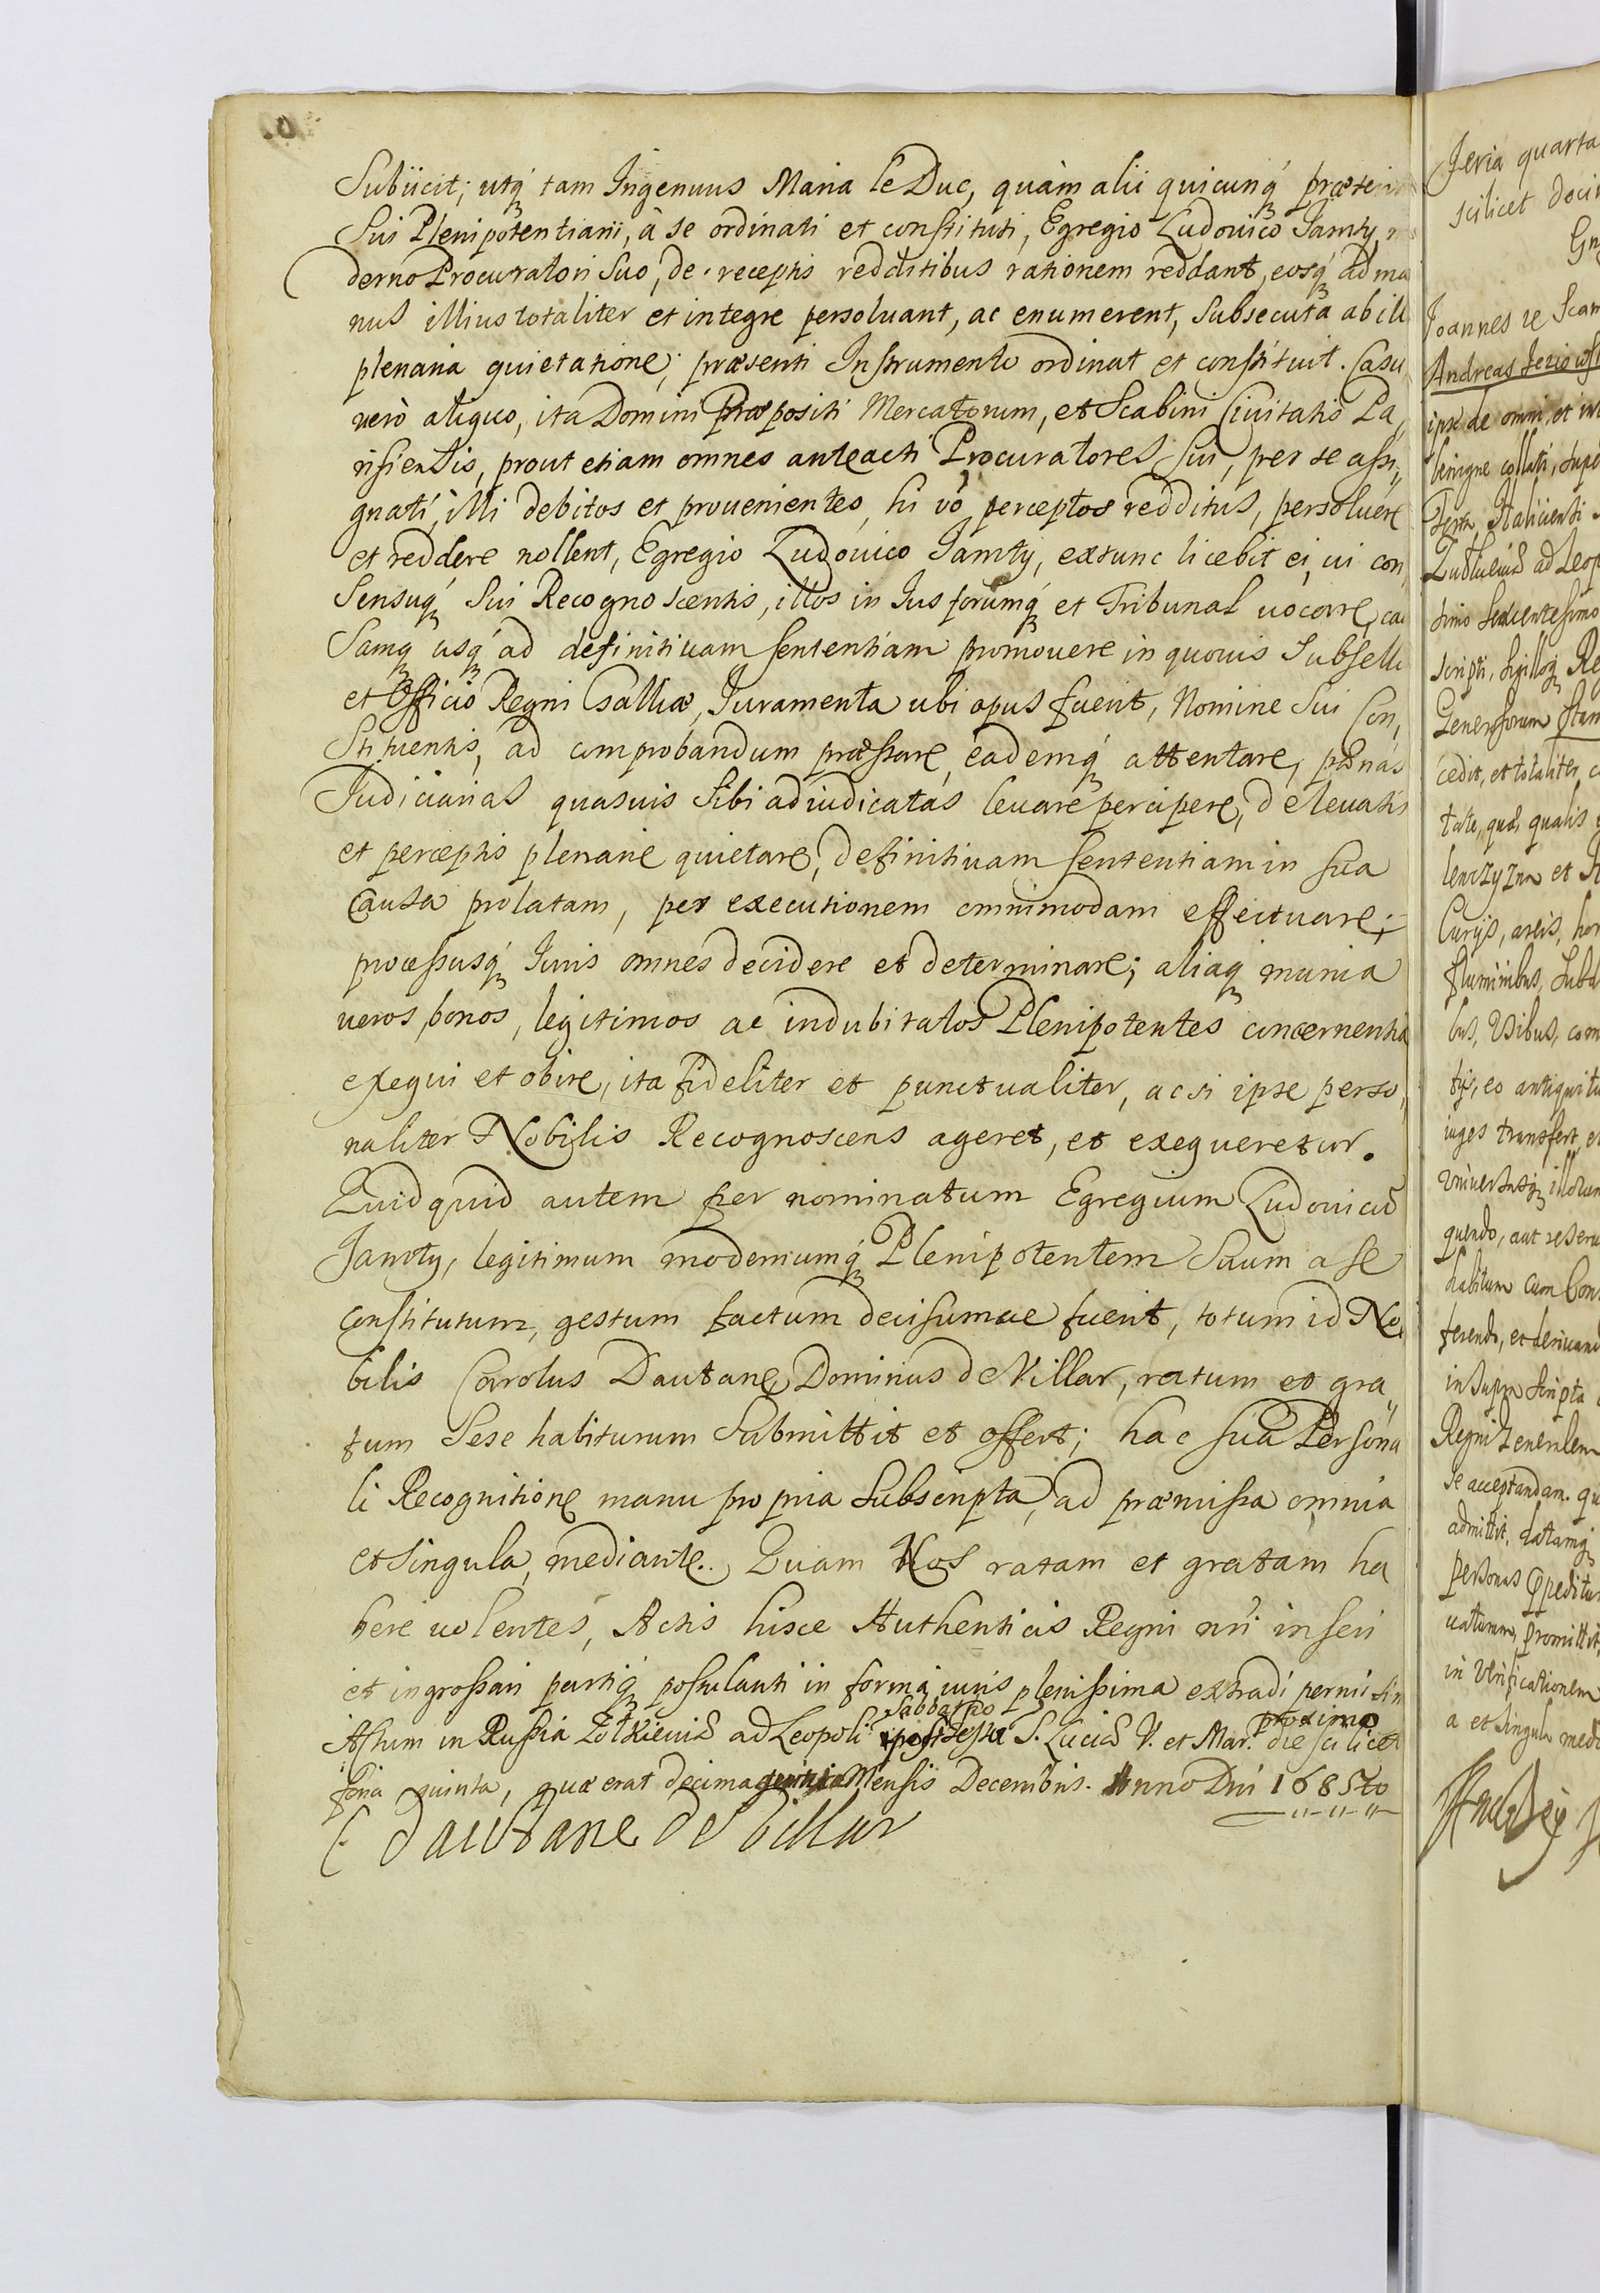 Subiicit; utq́ tam Ingenuus Maria le Duc, quàm alii quicunq́ præter
Sui Plenipotentiarii, à se ordinati et constituti, Egregio Ludouico Jamty
derno Procuratori Suo, de receptis redditibus rationem reddant, eosq́ ad ma
nus illius totaliter et integre persoluant, ac enumerent, Subsecuta ab ill
plenaria quietatione, præsenti Instrumento ordinat et constituit. Casu
verò aliquo, ita Domini Præpositi Mercatorum, et Scabini Ciuitatis Pa,
risiensis, prout etiam omnes anteacti Procuratores sui, per se assi,,
gnati, illi debitos et prouenientes, hi vo perceptos redditus, persoluere
et reddere nollent, Egregio Ludouico Jamty, extunc licebit ei, vi con,
Sensusq́ Sui Recognoscentis, illos in Jus forumq́ et Tribunal uocare, cau
Samq́ usq́ ad definitiuam sententiam promouere in quouis Subselli
et Officio Regni Galliæ, Juramenta ubi opus fuerit, Nomine Sui Con,
Stituentis, ad comprobandum præstare, eademq́ attentare, pœnas
Judiciarias quasuis Sibi adiudicatas leuare percipere, de leuatis
et perceptis plenarie quietare, definitiuam sententiam in sua
Causa prolatam, per executionem omnimodam effectuare;
processusq́ Juris omnes decidere et determinare; aliaq́ munia
ueros, bonos, legitimos ac indubitatos Plenipotentes concernentia
exequi et obire, ita fideliter et punctualiter, ac si ipse perso,
naliter Nobilis Recognoscens ageret, et exequeretur.
Quidquid autem per nominatum Egregium Ludouicū
Jamty, legitimum modernumq́ Plenipotentem Suum a se
constitutum, gestum factum decisumue fuerit, totum id No,
bilis Carolus Dautane, Dominus de Villar, ratum et gra,,
tum Sese habiturum Submittit et offert; hac sua Persona
li Recognitione manu propria Subscripta, ad præmissa omnia
et singula, mediante. Quam Nos ratam et gratam ha
bere uolentes, Actis hisce Authenticis Regni nri inseri
et ingrossari partiq́ postulanti in forma iuris plenissima extradi permisim
Sabbatho proximo
Actum in Russia Zołkieuiæ ad Leopoli S. Luciæ V. et Mar. die scilicet
feria quinta, quæ erat decima Mensis Decembris. Anno Dni 1685to
C Dautane de villar
Feria quarta
scilicet deci
Gn
Joannes
Andreas
ipse de omni, et
benigne collati, supe
ad Leop
simo sexcentesimo
scripti, sigilloq́ Re
Generosorum
cedit, et totaliter, c
tate, quæ qualis
et
Curijs, areis, hor
fluminibus, Subd
bus, Usibus, com
tijs, eo antiquitu
iuges transfert, et
Uniuersasq́ illorum
quendo, aut reseru
habitum cum Con
ferendo, et deriuand
in supra scripta
Regni Generalem
se acceptandam. qu
admittit. datamq́
personas
uaturum, promittit,
in Verificationem
a et singula medi
Andrzey